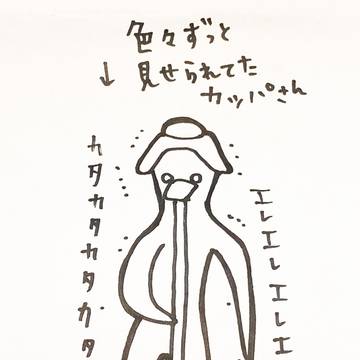 色々ずっと
↓ 見せられてた
カッパさん
カタカタカタカタ
エレエレエレエ